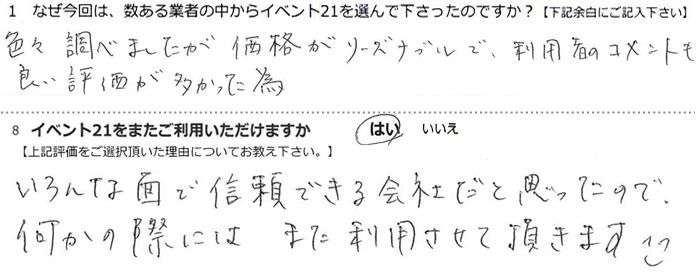 1 なぜ今回は、数ある業者の中からイベント21を選んで下さったのですか？【下記余白にご記入下さい】
色々 調べましたが 価格が リーズナブルで、利用者のコメントも
良い評価が多かった為
8 イベント21をまたご利用いただけますか はい いいえ
【上記評価をご選択頂いた理由についてお教え下さい。】
いろんな面で信頼できる会社だと思ったので、
何かの際には また利用させて頂きます